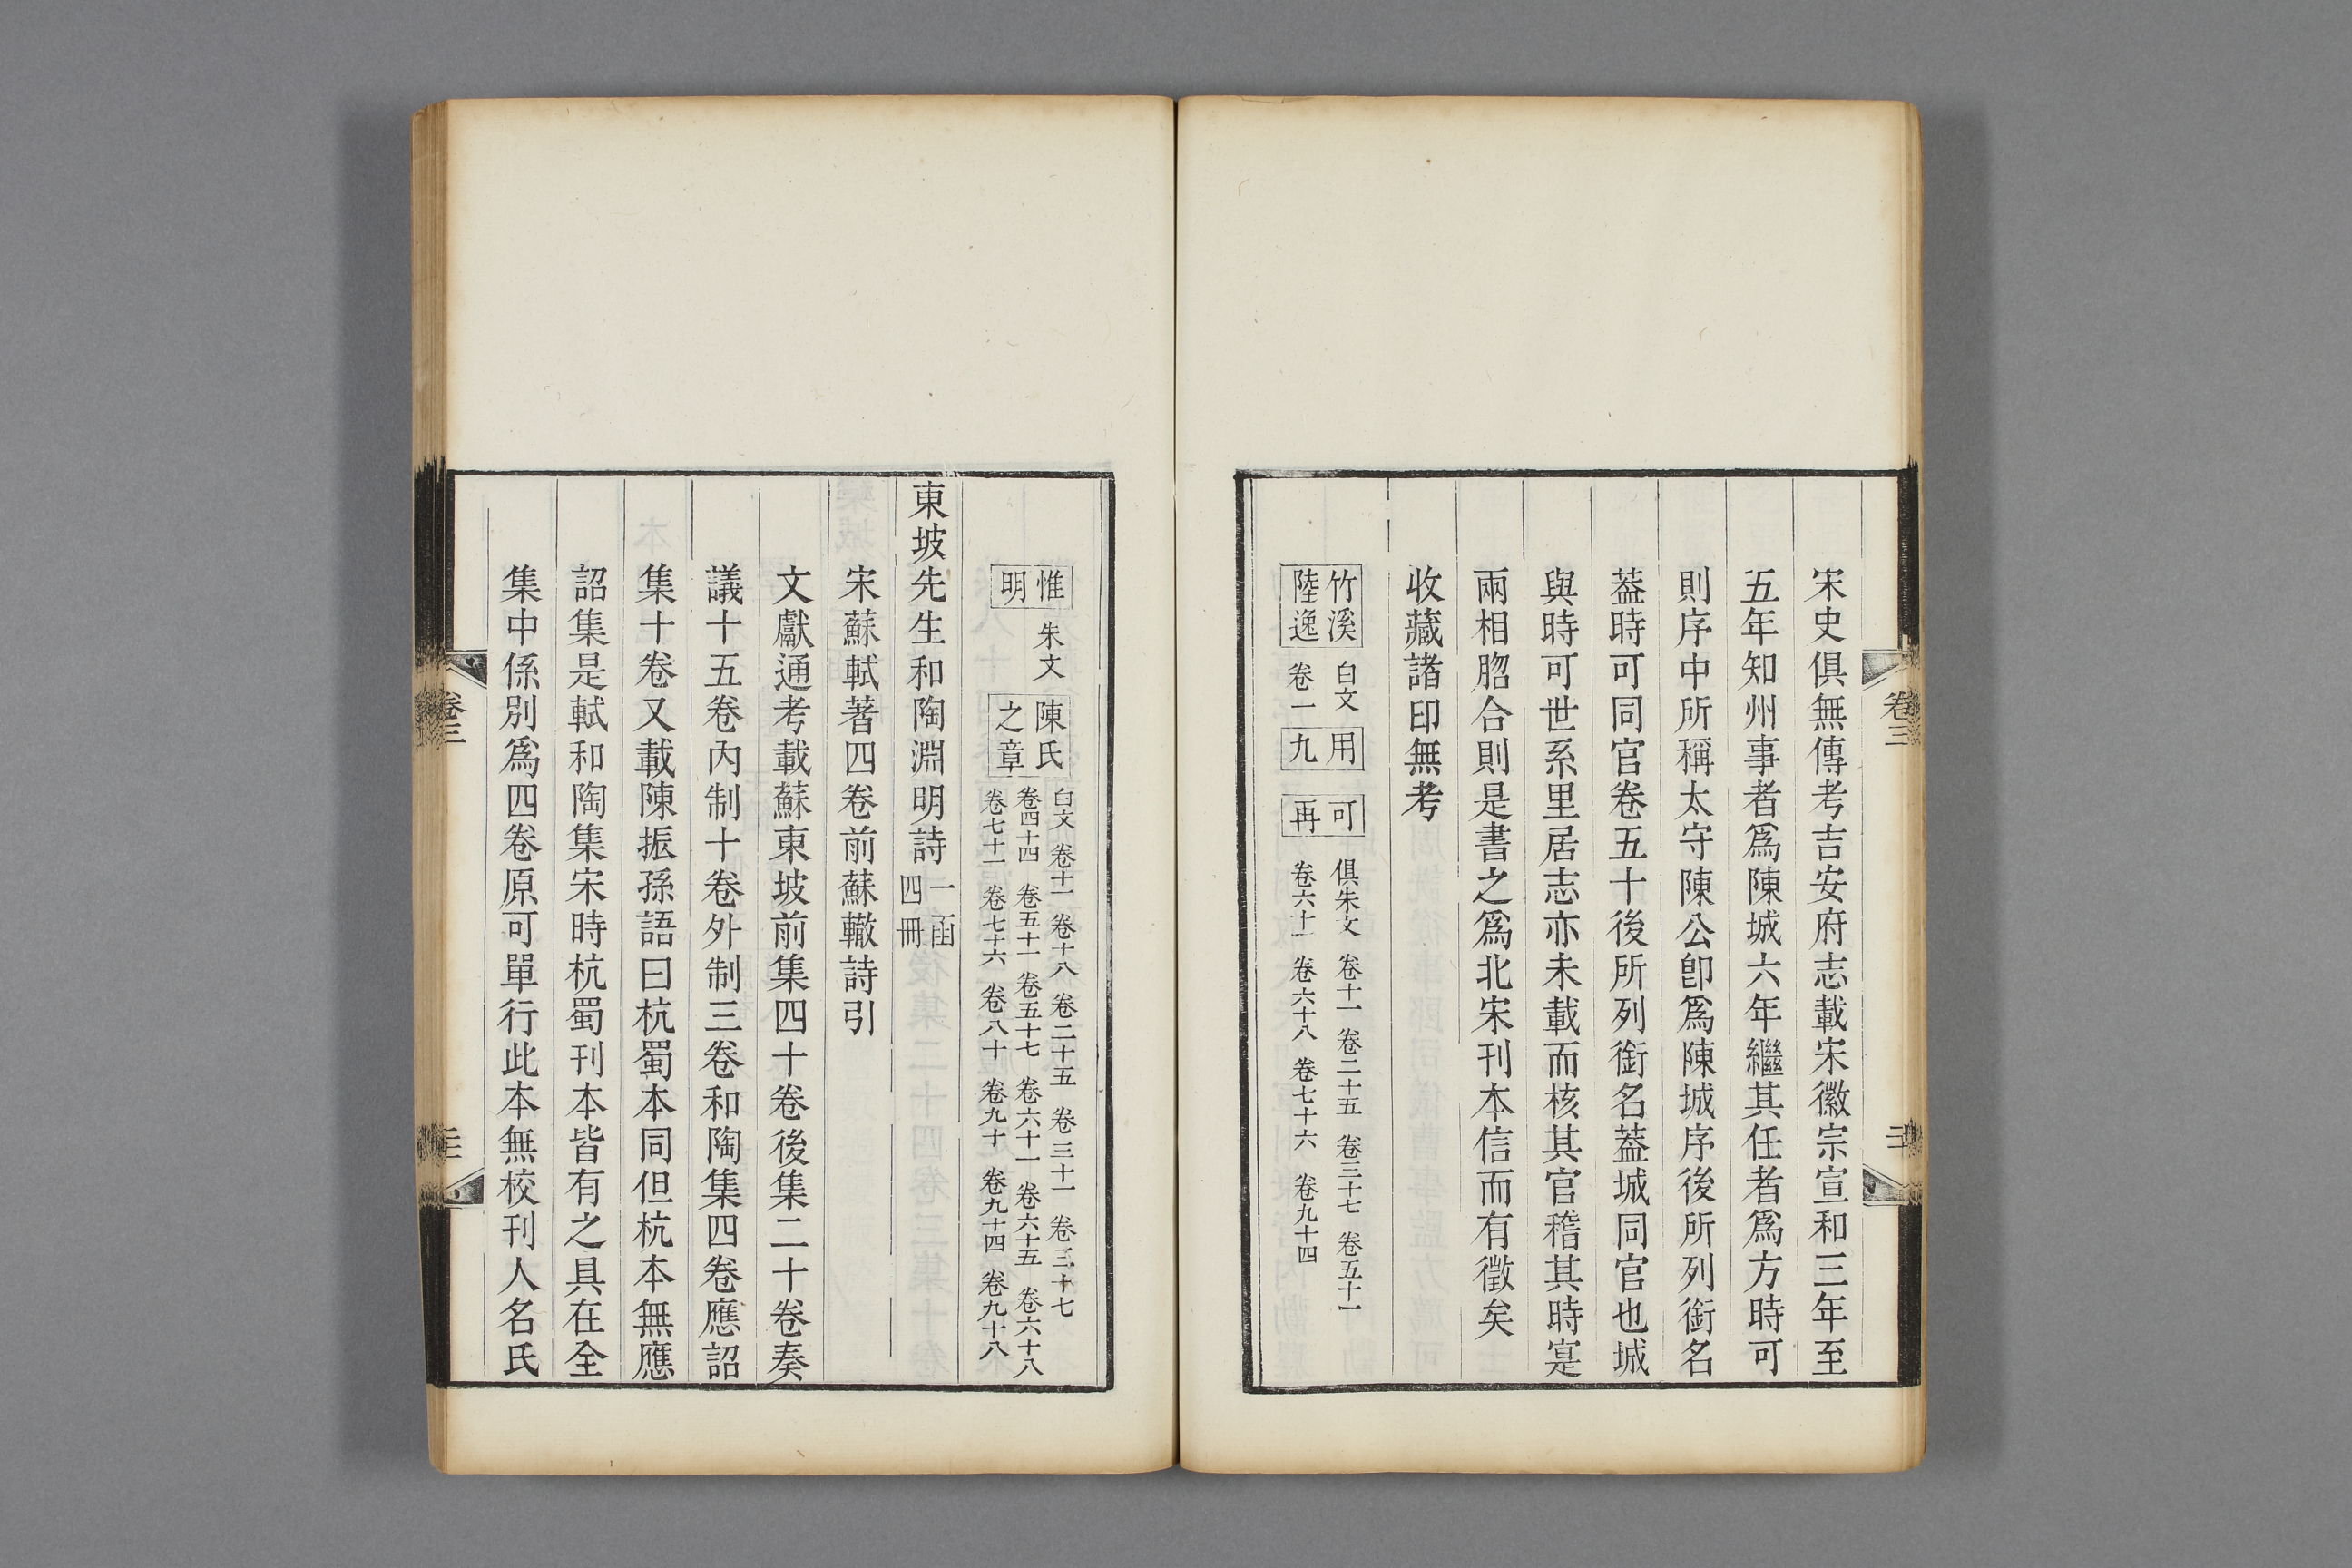 宋史俱無傳考吉安府志載宋徽宗宣和三年至
五年知州事者爲陳城六年繼其任者爲方時可
則序中所稱太守陳公卽爲陳城序後所列銜名
葢時可同官卷五十後所列銜名葢城同官也城
與時可世系里居志亦未載而核其官稽其時寔
兩相脗合則是書之爲北宋刊本信而有徵矣
收藏諸印無考
竹溪
陸逸
白文
卷一
用
九
可
再
俱朱文 卷十一 卷二十五 卷三十七 卷五十一
卷六十一 卷六十八 卷七十六 卷九十四
卷三
惟
明
朱文
陳氏
之章
白文 卷十一 卷十八 卷二十五 卷三十一 卷三十七
卷四十四 卷五十一 卷五十七 卷六十一 卷六十五 卷六十八
卷七十一 卷七十六 卷八十 卷九十 卷九十四 卷九十八
東坡先生和陶淵明詩
一函
四冊
宋蘇軾著四卷前蘇轍詩引
文獻通考載蘇東坡前集四十卷後集二十卷奏
議十五卷內制十卷外制三卷和陶集四卷應詔
集十卷又載陳振孫語曰杭蜀本同但杭本無應
詔集是軾和陶集宋時杭蜀刊本皆有之具在全
集中係別爲四卷原可單行此本無校刊人名氏
卷三